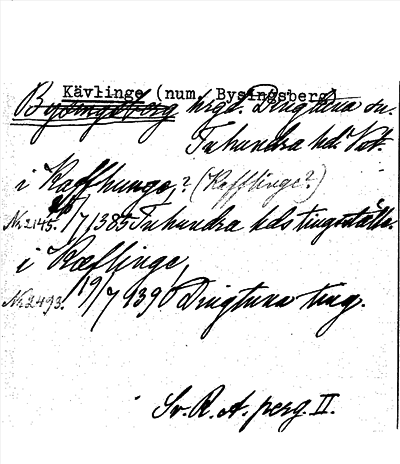 Kävlinge (num. Bysingsberg)
Bysingsberg hrgd. Dingtuna sn.
Tuhundra hd. Vstm.
i Kafflunge? (Kafflinge?)
Nr 2145. /7 1385 Tuhundra hds tingsställe
i Kæflinge,
Nr 2493. 19/7 1390 Dingtuna ting.
Sv. R. A. perg. II.